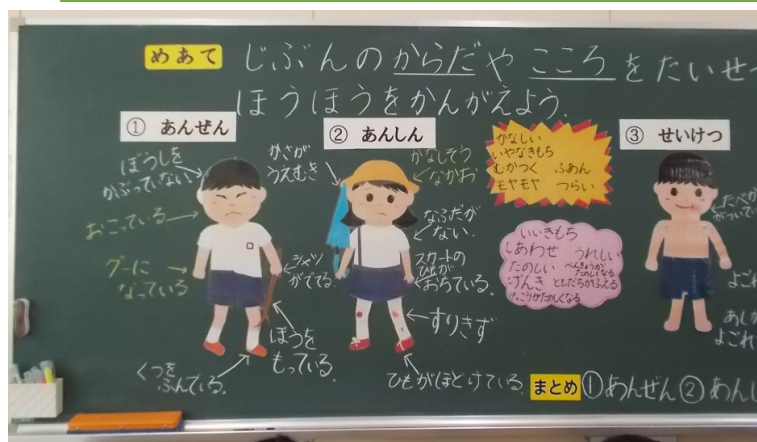 めあて じぶんのからだや こころをたいせつ
ほうほうをかんがえよう.
① あんぜん
ぼうしを
かぶっていない
おこっている
グーに
なっている
くつを
ふんでいる.
シャツ
がでてる
ぼうを
もっている.
② あんしん
かさが
うえむき
かなしそう
なかお
なふだが
ない.
スカートの
ひもが
おちている.
すりきず
ひもがほどけている.
かなしい
いやなきもち
むかつく ふあん
モヤモヤ つらい
いいきもち
しあわせ うれしい
たのしい べんきょうが
たのしくなる
げんき ともだちがふえる
がっこうがたのしくなる
③ せいけつ
たべか
がついて
よごれ
あしが
よごれ
まとめ ①あんぜん ②あんし